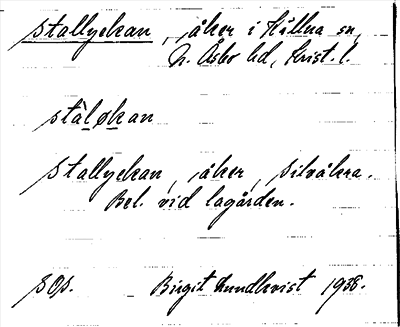 Stallyckan, åker i Källna sn,
N. Åsbo hd, Krist. l.
stàløkan
Stallyckan, åker, Silvåkra.
Bel. vid lagården.
SOS. Birgit Lundkvist 1938.